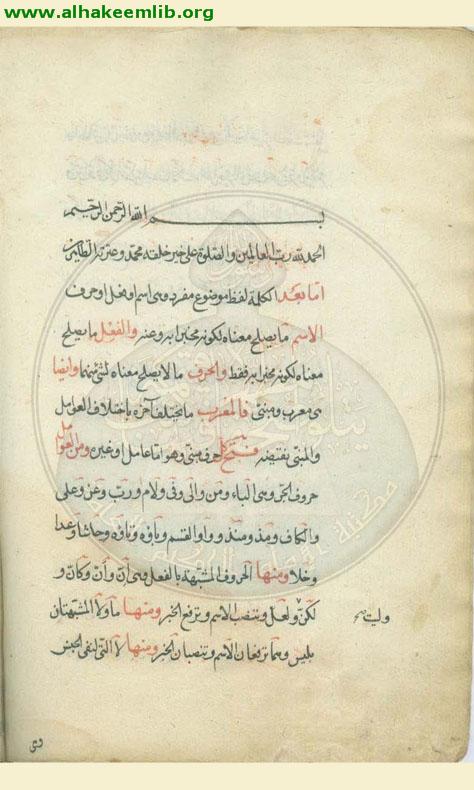 www.alhakeemlib.org
بسم الله الرحمن الرحيم
الحمد لله رب العالمين والصلوة على خير خلقه محمد وعترته الطاهرين
اما بعد الكلمة لفظ موضوع مفرد وهى اسم وفعل او حرف
الاسم ما يصلح معناه لكونه مخبرا به وعنه والفعل ما يصلح
معناه لكونه مخبرا به فقط والحرف ما لا يصلح معناه لشئ منهما وايضا
هى معرب ومبنى فالمعرب ما يختلف آخره باختلاف العوامل
والمبنى بنقيضه كل حرف مبنى وهو اما عامل او غيره ومن العوامل
حروف الجر وهى الباء ومن والى وفى ولام ورب وعن وعلى
والكاف ومذ ومنذ وواو القسم وباؤه وتاؤه وحاشا وعدا
وخلا ومنها الحروف المشبهة بالفعل وهى ان وأن وكان و
لكن ولعل وتنصب الاسم وترفع الخبر ومنها ما ولا المشبهتان
وليت صح
بليس وهما ترفعان الاسم وتنصبان الخبر ومنها لا التى لنفى الجنس
وهى